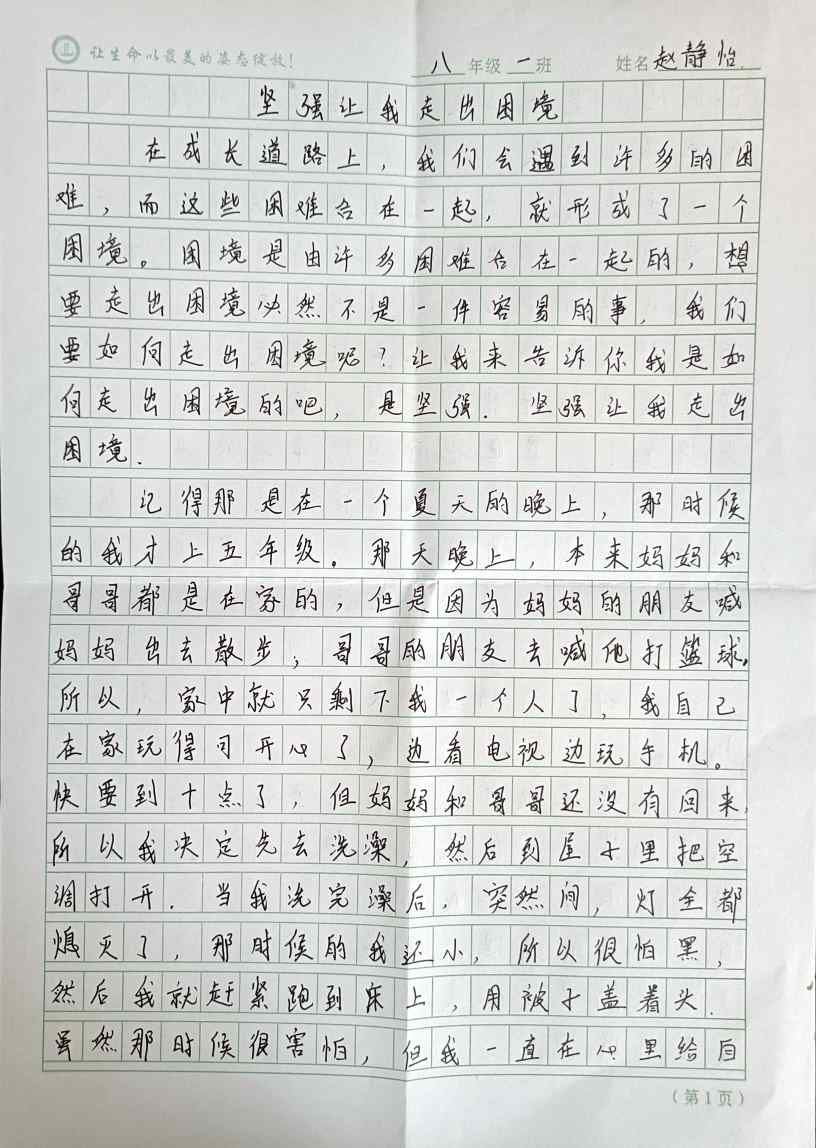 让生命以最美的姿态绽放!
八年级一班 姓名赵静怡
坚强让我走出困境
在成长道路上，我们会遇到许多的困
难，而这些困难合在一起，就形成了一个
困境。困境是由许多困难合在一起的，想
要走出困境必然不是一件容易的事，我们
要如何走出困境呢？让我来告诉你我是如
何走出困境的吧，是坚强．坚强让我走出
困境．
记得那是在一个夏天的晚上，那时候
的我才上五年级。那天晚上，本来妈妈和
哥哥都是在家的，但是因为妈妈的朋友喊
妈妈出去散步，哥哥的朋友去喊他打篮球。
所以，家中就只剩下我一个人了，我自己
在家玩得可开心了，边看电视边玩手机。
快要到十点了，但妈妈和哥哥还没有回来，
所以我决定先去洗澡，然后到屋子里把空
调打开．当我洗完澡后，突然间，灯全都
熄灭了，那时候的我还小，所以很怕黑，
然后我就赶紧跑到床上，用被子盖着头．
虽然那时候很害怕，但我一直在心里给自
（第1页）